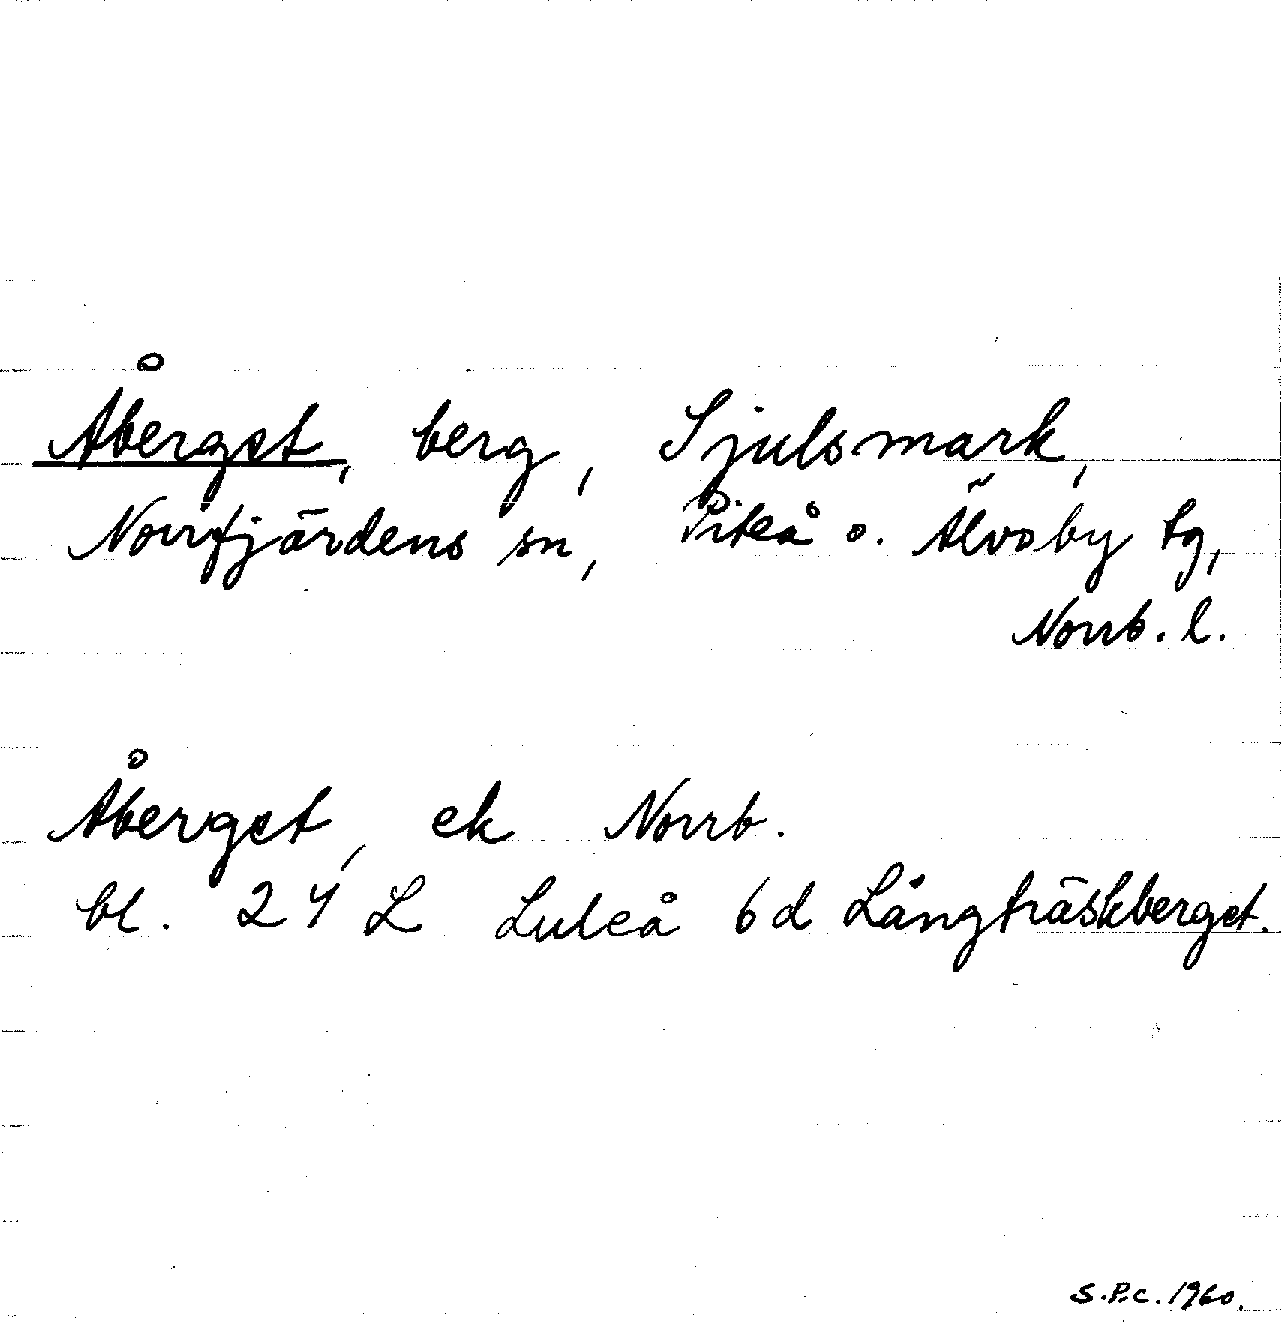 Åberget, berg, Sjulsmark,
Norrfjärdens sn, Piteå o. Älvsby tg,
Norrb. l.
Åberget, ek Norrb.
bl. 24 L Luleå 6d Långträskberget.
S.P.C. 1960.